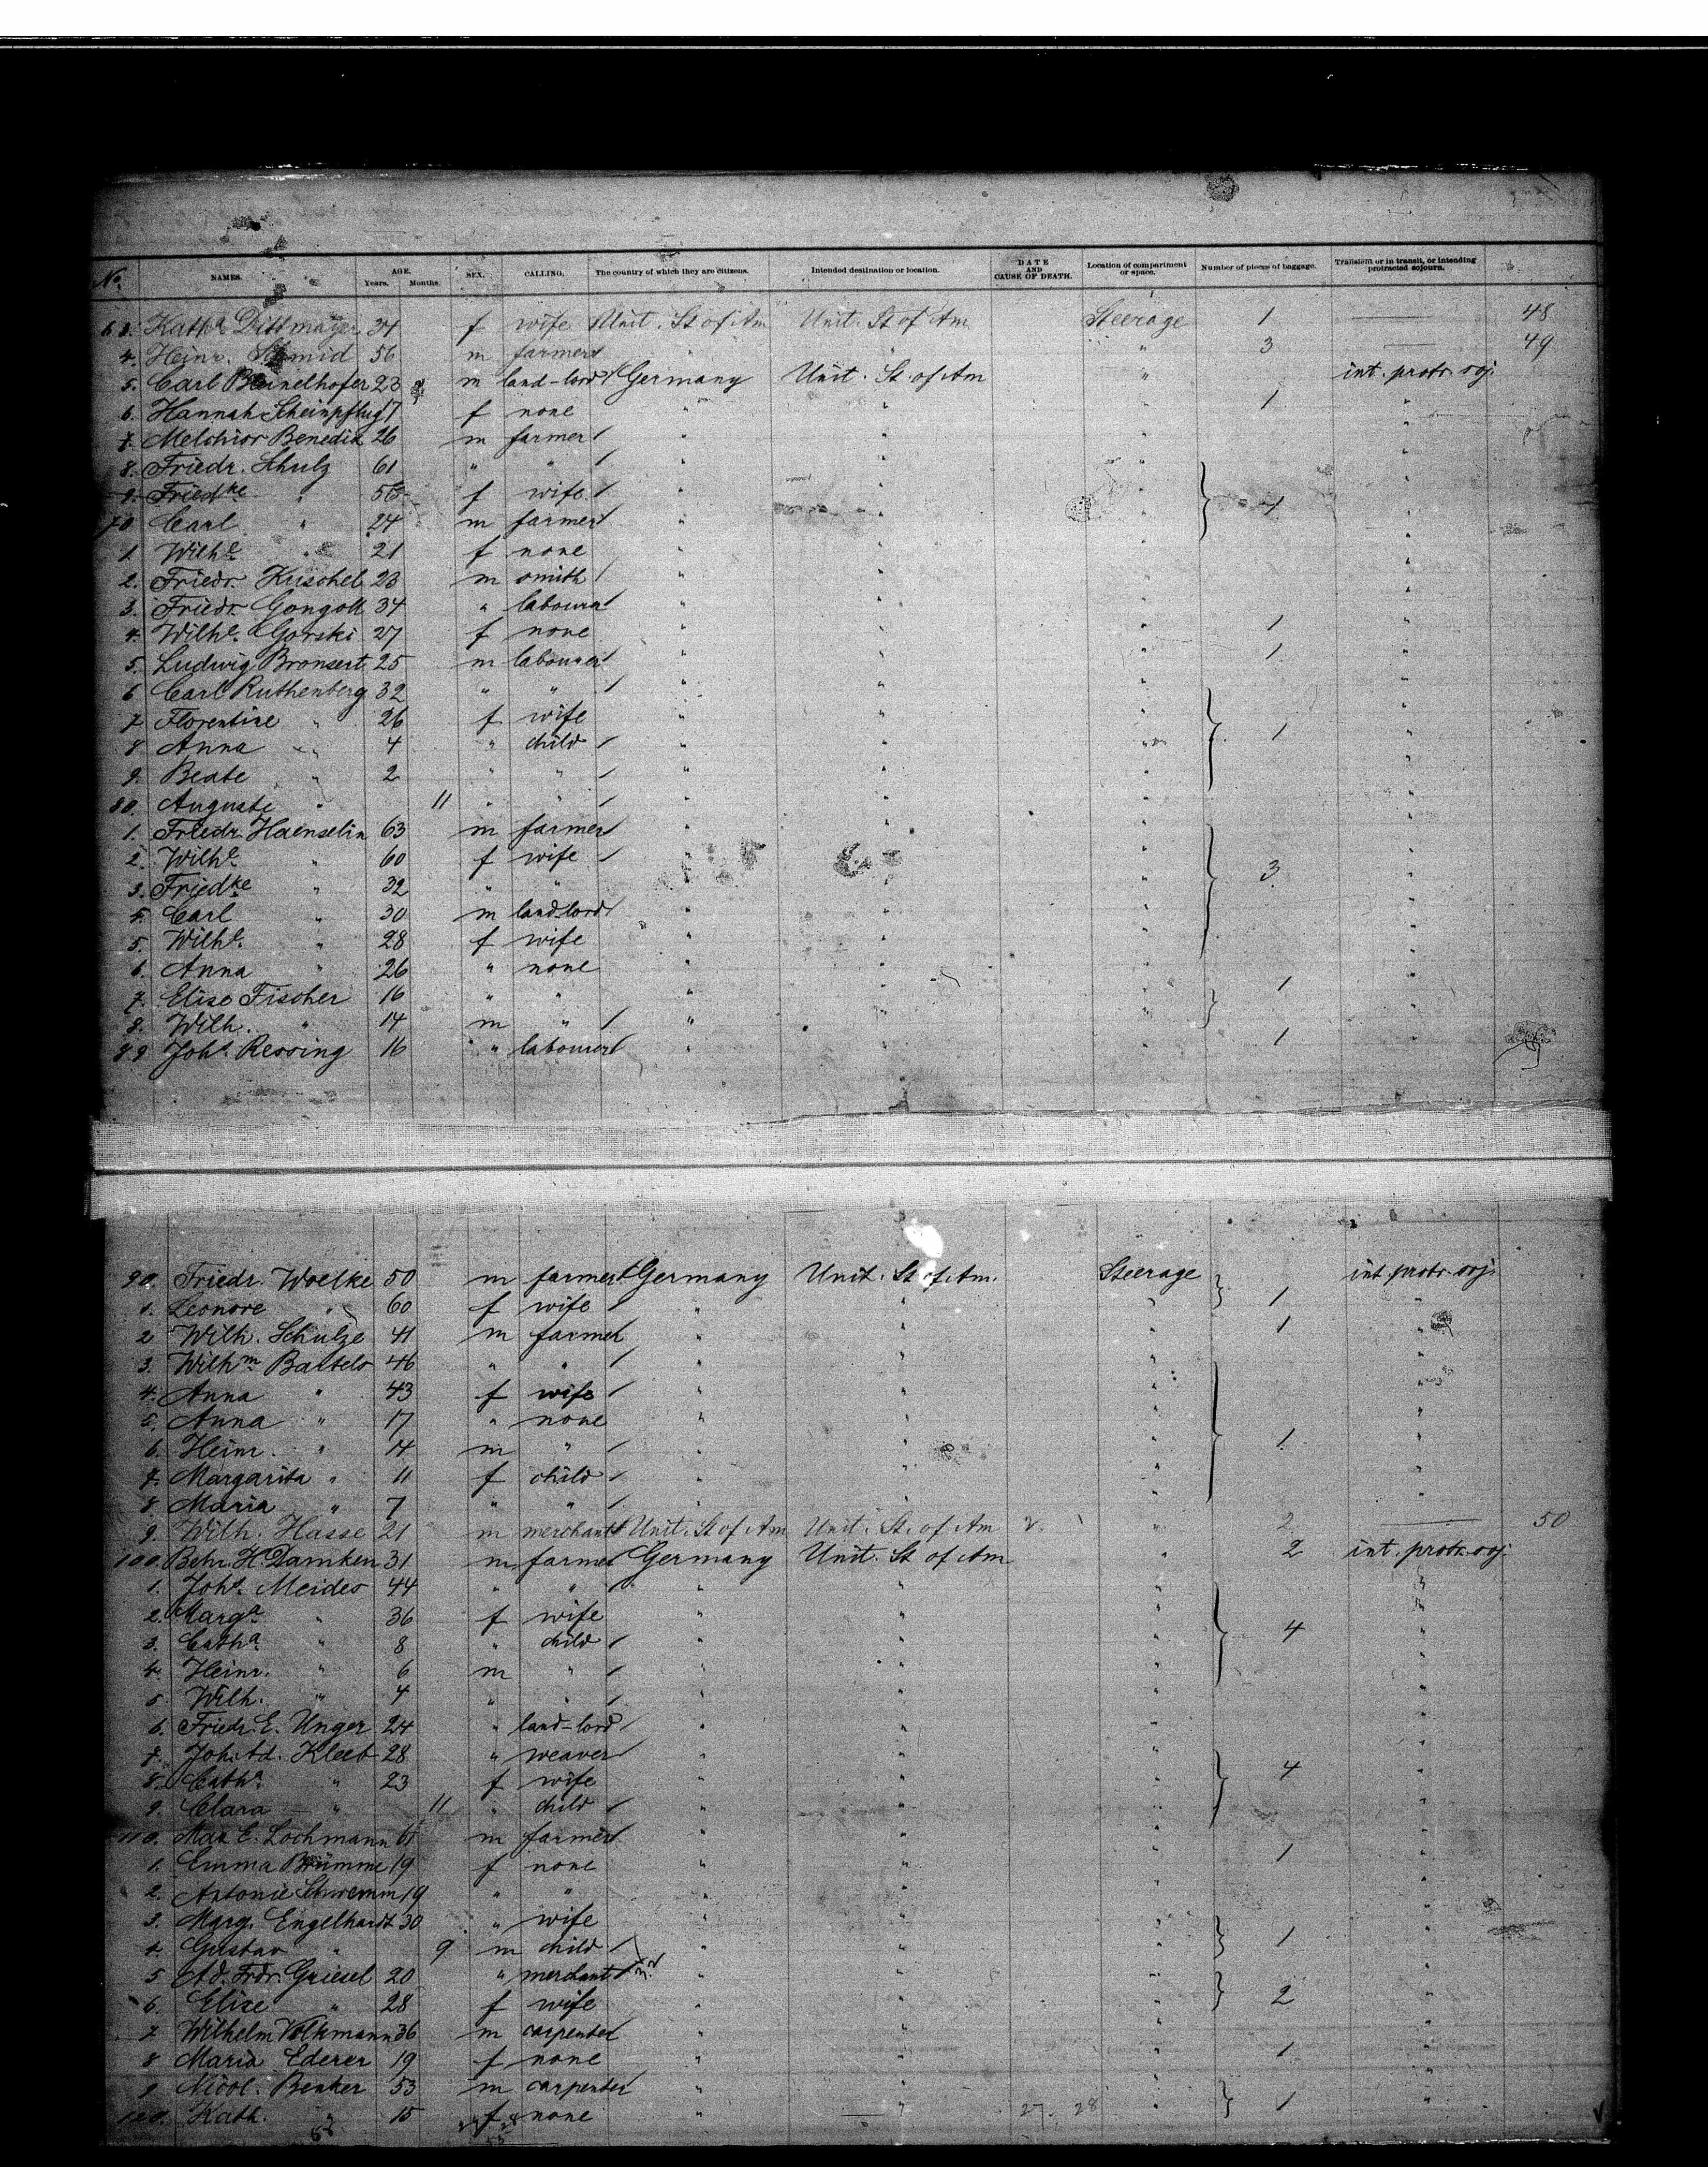 No. NAMES. AGE. Years. Months. SEX. CALLING. The country of which they are citizens. Intended destination or location. DATE AND CAUSE OF DEATH. Location of compartment or space. Number of pieces of baggage. Transient or in transit, or intending protracted sojourn.
63. Katha Dittmayer 34 f wife Unit. St of Am Unit. St of Am Steerage 1 — 48
4. Heinr. Schmid 56 m farmer " " " 3 — 49
5. Carl 23 m land-lord Germany Unit. St. of Am " int. protr. soj.
6. Hannah Scheinpflug 17 f none " " " 1 "
7. Melchior Benedik 26 m farmer " " " "
8. Friedr. Schulz 61 " " " " " "
9. Friedke " f wife " " " 4 "
70 Carl " 24 m farmer " " " "
1 Wilhe " 21 f none " " " "
2. Friedr. Kuschel 23 m smith " " " "
3. Friedr. Gongoll 34 " labourer " " " "
4. Wilhe. Gorski 27 f none " " " 1 "
5. Ludwig Bronsert 25 m labourer " " " 1 "
6 Carl Ruthenberg 32 " " " " " "
7 Florentine " 26 f wife " " " "
8 Anna " 4 " child " " " 1 "
9. Beate " 2 " " " " " "
80. Auguste " 11 " " " " " "
1. Friedr. Haenselin 63 m farmer " " " "
2. Wilhe. " 60 f wife " " " "
3. Friedke " 32 " " " " " 3 "
4. Carl " 30 m land-lord " " " "
5. Wilhe. " 28 f wife " " " "
6. Anna " 26 " none " " " "
7. Elise Fischer 16 " " " " " 1 "
8. Wilh. " 14 m " " " " "
89 Johs. Ressing 16 " labourer " " " 1 "
90. Friedr. Woelke 50 m farmer Germany Unit. St of Am. Steerage int. protr. soj.
1. Leonore " 60 f wife " " " 1 "
2 Wilh. Schulze 41 m farmer " " " 1 "
3. Wilhm. Bartels 46 " " " " " "
4. Anna " 43 f wife " " " "
5. Anna " 17 " none " " " "
6. Heinr. " 14 m " " " " 1 "
7. Margarita " 11 f child " " " "
8 Maria " 7 " " " " " "
9. Wilh. Hasse 21 m merchant Unit. St of Am Unit. St. of Am " 2 — 50
100. Behr. H. Damken 31 m farmer Germany Unit. St of Am " 2 int. protr. soj.
1. Johs. Meides 44 " " " " " "
2. Marga. " 36 f wife " " " "
3. Catha. " 8 " child " " " 4 "
4. Heinr. " 6 m " " " " "
5. Wilh. " 4 " " " " " "
6. Friedr. E. Unger 24 " land-lord " " " "
7. Joh. Ad. Kleeb 28 " weaver " " " "
8. Catha. " 23 f wife " " " 4 "
9. Clara " 11 " child " " " "
110. Max E. Lochmann 61 m farmer " " " "
1. Emma Brümme 19 f none " " " 1 "
2. Antonie Schwemm 19 " " " " " "
3. Marg. Engelhardt 30 " wife " " " "
4. Gustav " 9 m child " " " 1 "
5 Ad. Frdr. Griesel 20 " merchant " " " "
6. Elise " 28 f wife " " " 2 "
7 Wilhelm Volkmann 36 m carpenter " " " "
8 Maria Ederer 19 f none " " " 1 "
9 Nicol. Benker 53 m carpenter " " " "
120. Kath. " 15 f none " " 27. 28 " 1 "